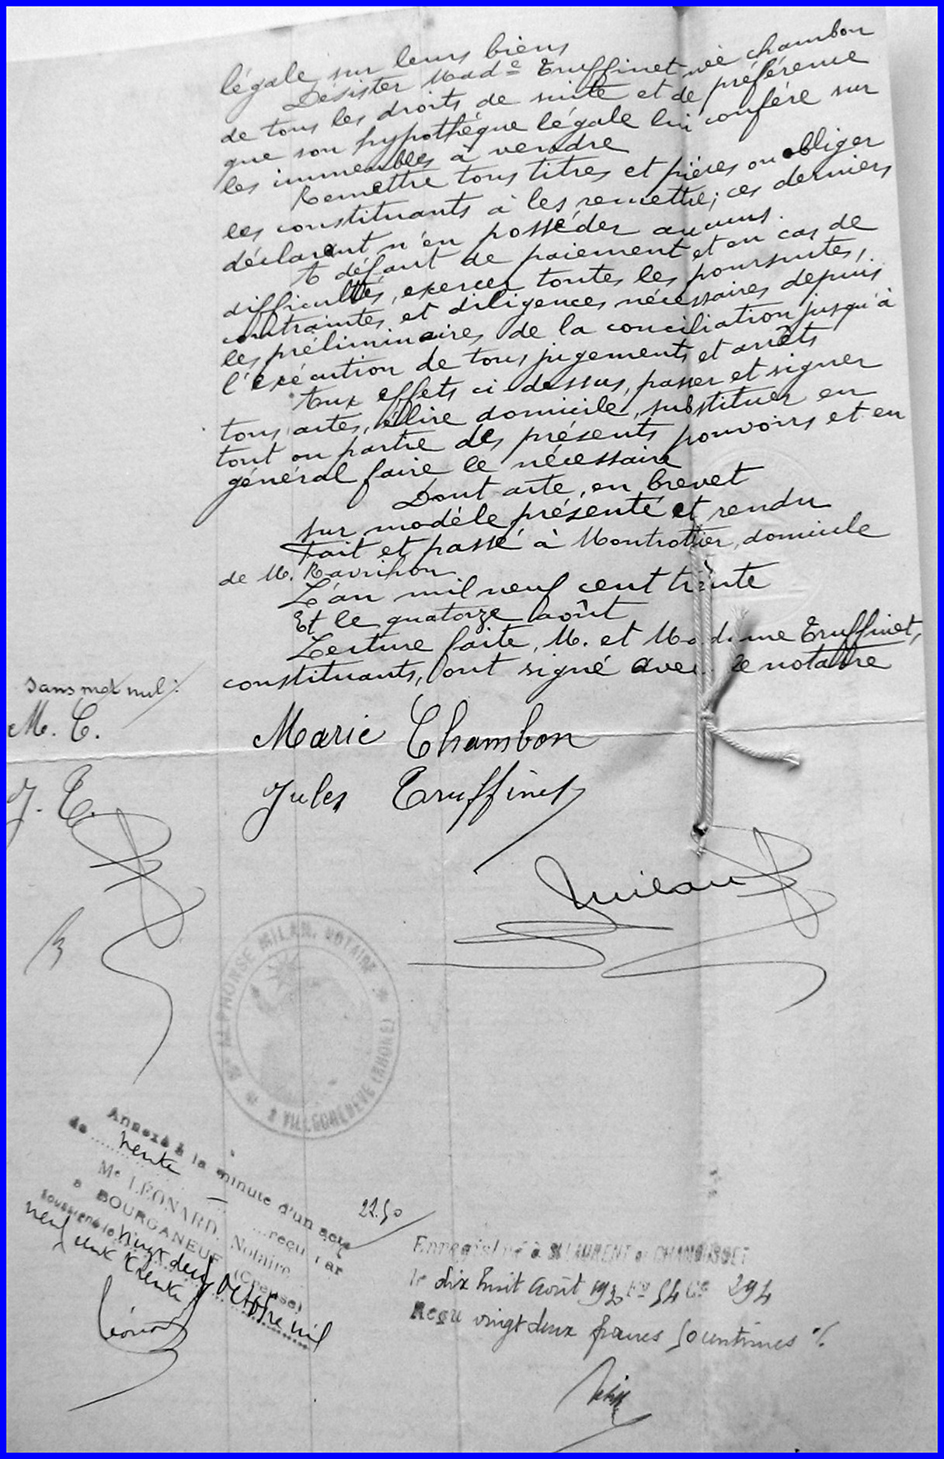 légale sur leurs biens
Désister Made Truffinet née Chambon
de tous les droits de suite et de préférence
que son hypothèque légale lui confère sur
les immeubles à vendre
Remettre tous titres et pièces ou obliger
les constituants à les remettre; ces derniers
déclarant n'en posséder aucuns.
A défaut de paiement et en cas de
difficultés, exercer toutes les poursuites,
contraintes et diligences nécessaires depuis
les préliminaires de la conciliation jusqu'à
l'exécution de tous jugements et arrêts
Aux effets ci-dessus, passer et signer
tous actes, élire domicile, substituer en
tout ou partie des présents pouvoirs et en
général faire le nécessaire
Dont acte, en brevet
sur modèle présenté et rendu
Fait et passé à Montrottier, domicile
de M.
L'an mil neuf cent trente
Et le quatorze août
Lecture faite, M. et Madame Truffinet,
constituants, ont signé avec le notaire
sans mot nul:
M. C.
Marie Chambon
J. T.
Jules Truffinet
Me ALPHONSE MILAN, NOTAIRE
A VILLECHENEVE (RHONE)
Annexé à la minute d'un acte
de vente reçu par
Me LÉONARD, Notaire
à BOURGANEUF (Creuse)
soussigné le vingt deux Octobre mil
neuf cent trente
Léonard
22.50
Enregistré à St LAURENT de CHAMOUSSET
le dix huit août 1930 Fo 54 Ce 294
Reçu vingt deux francs 50 centimes %